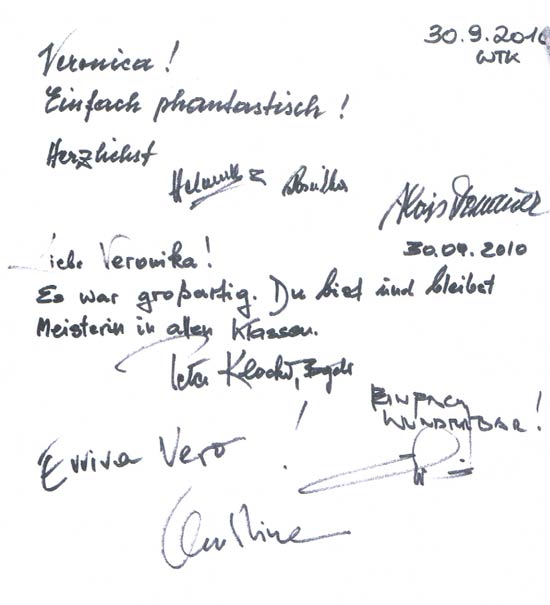 30.9.2010
WTK
Veronica!
Einfach phantastisch!
Herzlichst
Helmut & 
Alois
30.09.2010
Liebe Veronika!
Es war großartig. Du bist und bleibst
Meisterin in allen Klassen.
Peter
EINFACH
WUNDERBAR!
Evviva Vero!
Christine